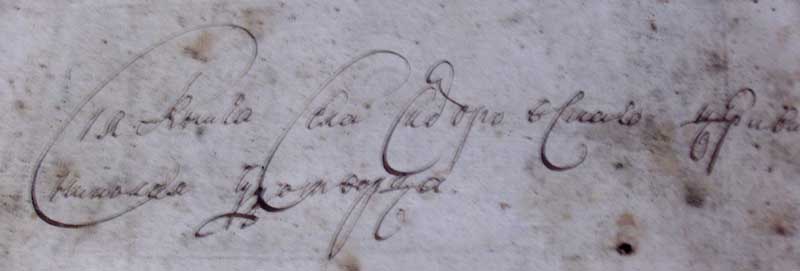 Сия книга села Сидоровскаго церкви
Николая Чудотворца.